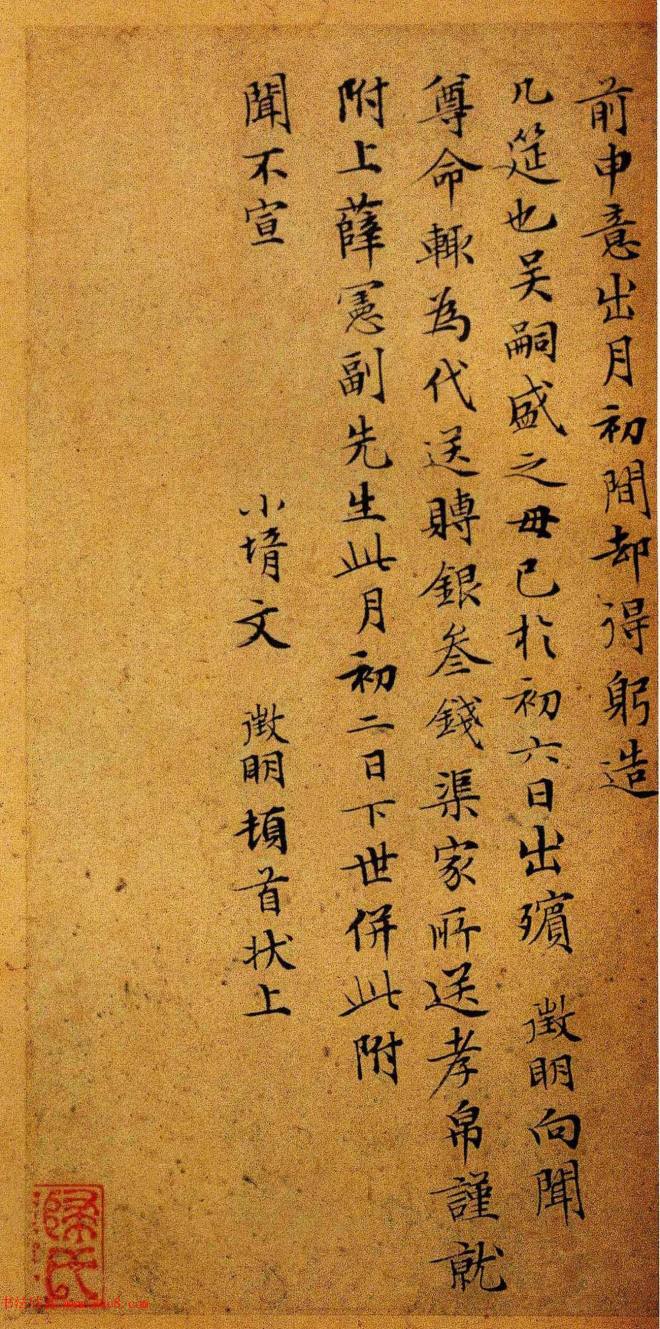 前申意出月初間却得躬造
几筵也吴嗣盛之毋已於初六日出殯 徵明向聞
尊命輙為代送賻銀叁錢渠家所送孝帛謹就
附上薛憲副先生此月初二日下世併此附
聞不宣
小壻文 徵明頓首状上